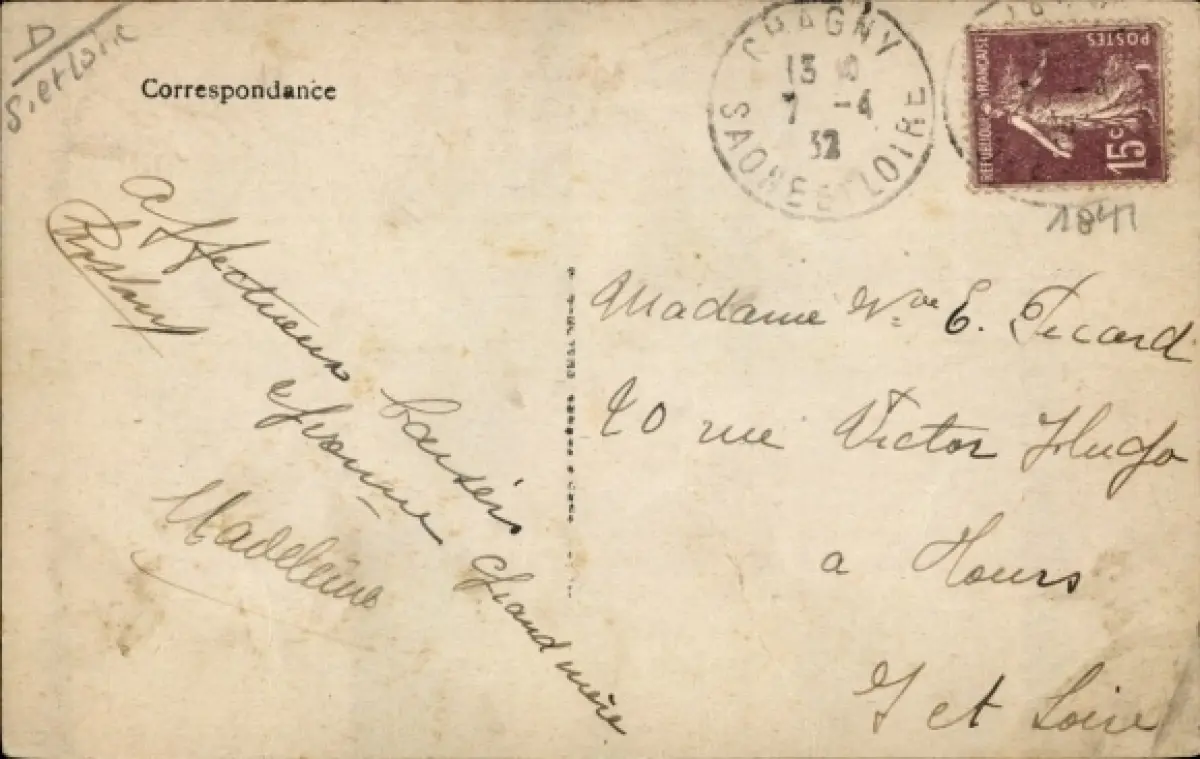 D
S. et Loire
Correspondance
CHAGNY
13 10
7 -4
32
SAONE ET LOIRE
REPUBLIQUE FRANCAISE
POSTES
15c
1841
Affectueux baisers
Grand mère
Yvonne
Madeleine
Madame Vve E. Picard
20 rue Victor Hugo
a Tours
I et Loire